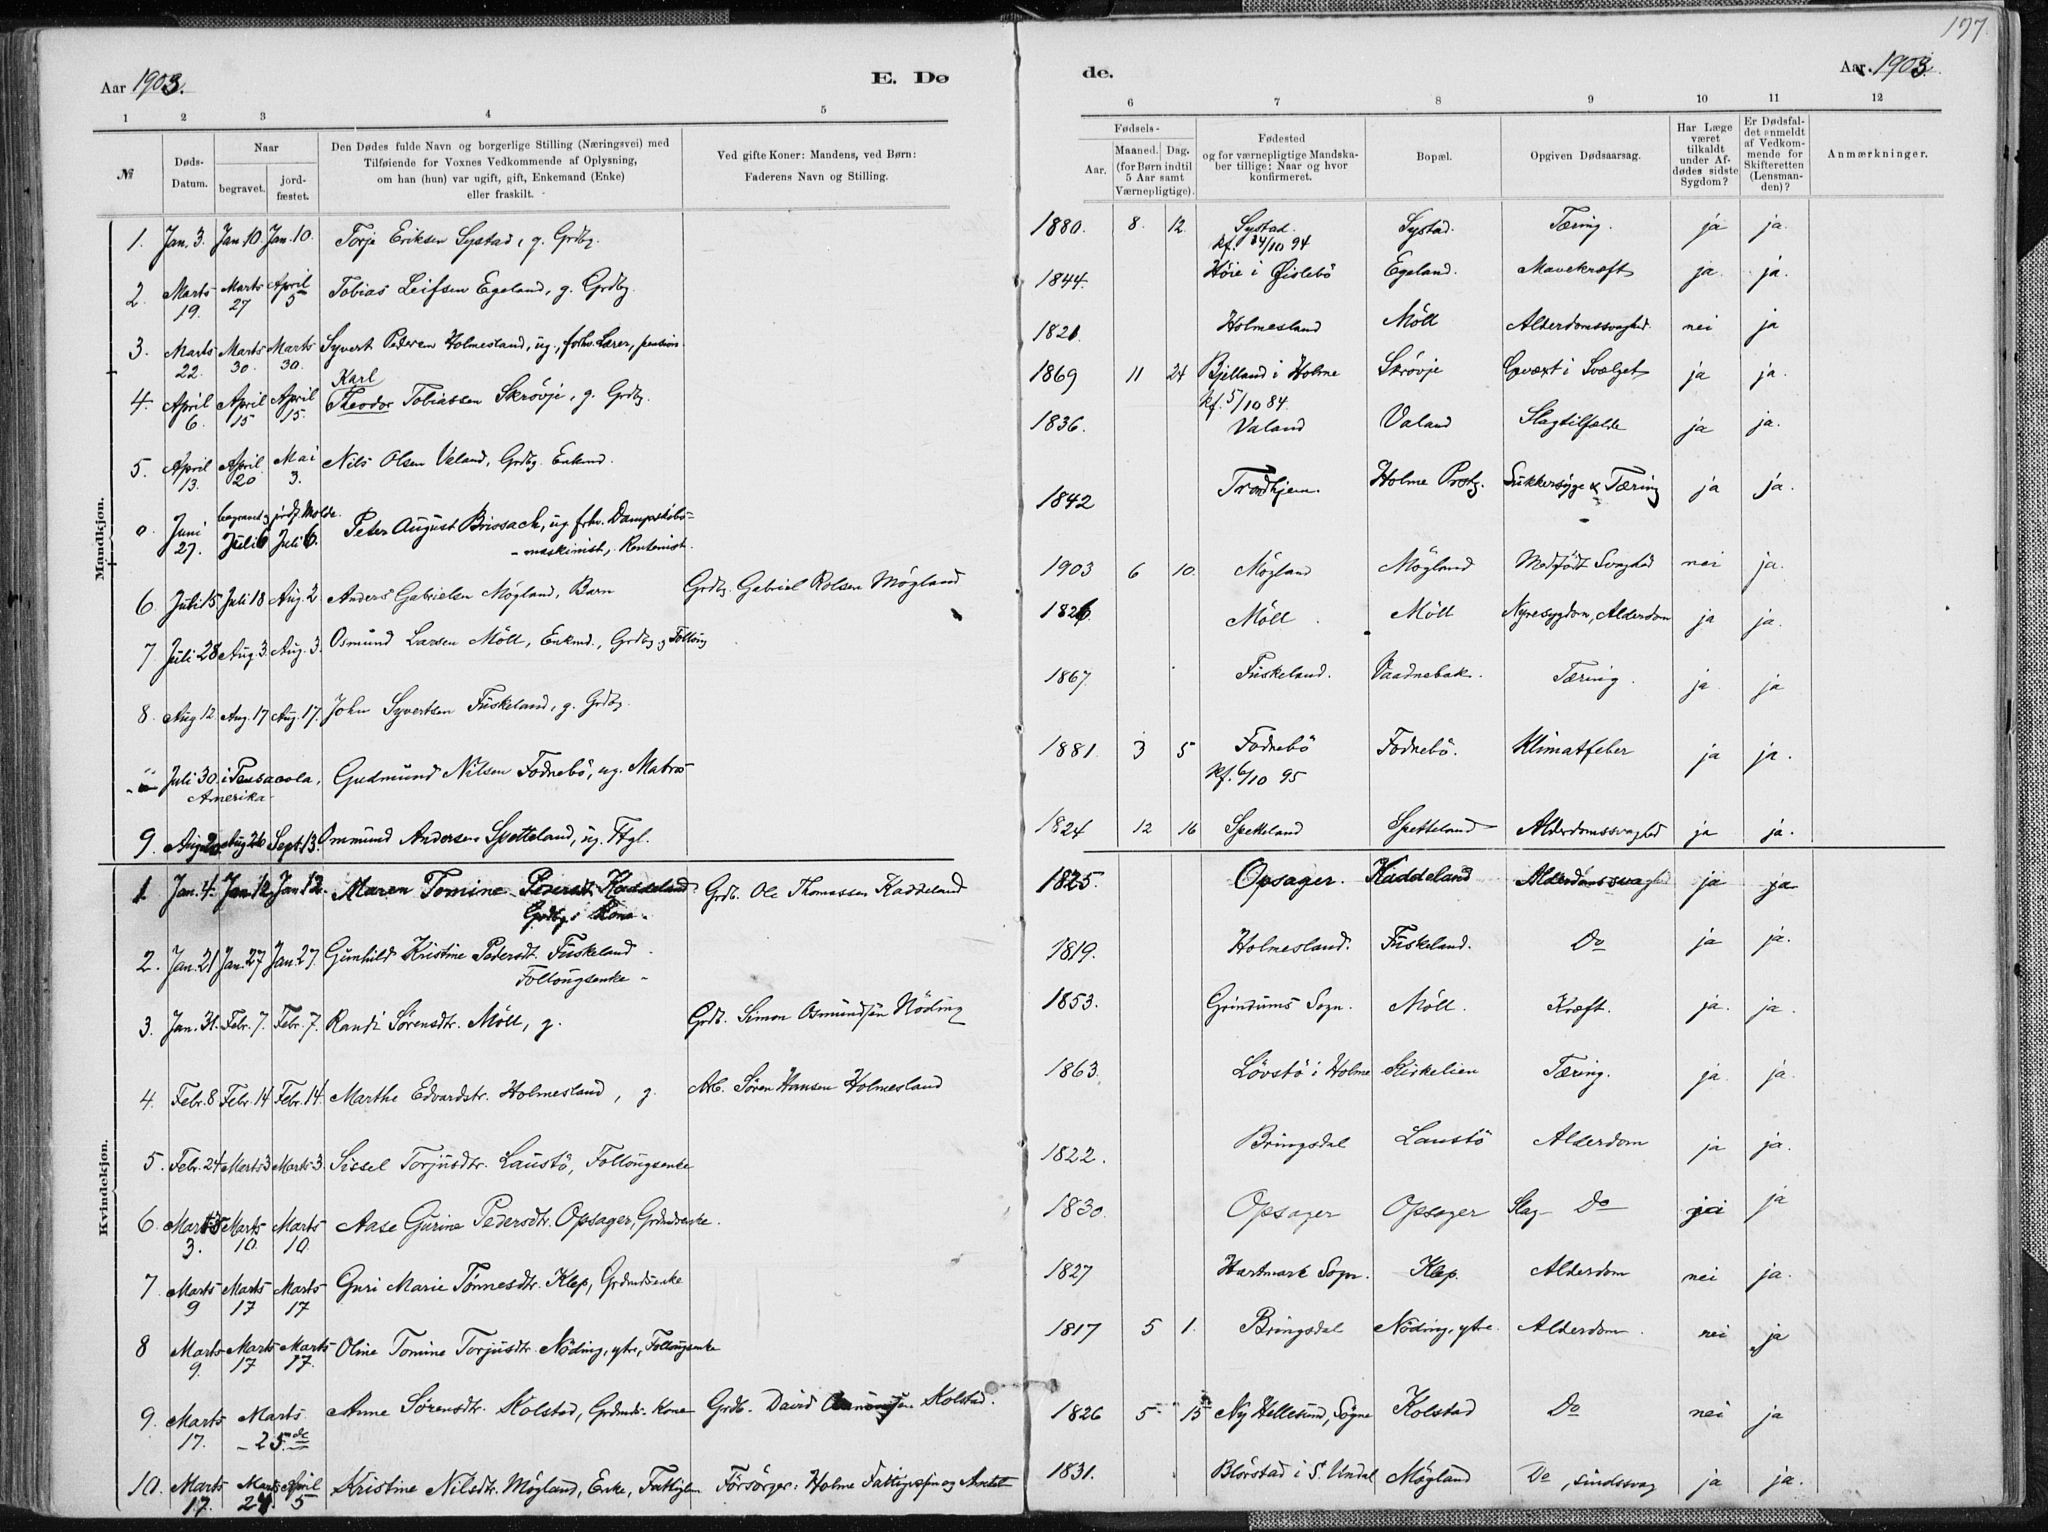 197
Aar 1903.
E. Dø
de.
Aar 1903.
1 2 3 4 5 6 7 8 9 10 11 12
№
Døds-Datum.
Naar
begravet.
jord-fæstet.
Den Dødes fulde Navn og borgerlige Stilling (Næringsvei) med
Tilføiende for Voxnes Vedkommende af Oplysning,
om han (hun) var ugift, gift, Enkemand (Enke)
eller fraskilt.
Ved gifte Koner: Mandens, ved Børn:
Faderens Navn og Stilling.
Fødsels-
Aar.
Maaned. Dag.
(for Børn indtil
5 Aar samt
Værnepligtige).
Fødested
og for værnepligtige Mandska-
ber tillige: Naar og hvor
konfirmeret.
Bopæl.
Opgiven Dødsaarsag.
Har Læge
været
tilkaldt
under Af-
dødes sidste
Sygdom?
Er Dødsfal-
det anmeldt
af Vedkom-
mende for
Skifteretten
(Lensman-
den)?
Anmærkninger.
Mandkjøn.
1. Jan. 3. Jan. 10. Jan. 10. Torje Eriksen Systad, g. Grdbg. 1880. 8. 12. Systad. kf. 14/10 94 Systad. Tæring. ja ja.
2. Marts 19. Marts 27 April 5 Tobias Leifsen Egeland, g. Grdbg. 1844. Høie i Øislebö Egeland. Mavekræft ja. ja.
3. Marts 22. Marts 30. Marts 30. Syvert Pedersen Holmesland, ug., forhv. Lærer, pension. 1821. Holmesland Möll Alderdomssvaghed. nei ja
4. April 6. April 15 April 15. Karl Theodor Tobiassen Skrövje, g. Grdbg. 1869 11 24 Bjelland i Holme kf. 5/10 84. Skrövje Gevæxt i Svælget ja ja.
5. April 13. April 20 Mai 3. Nils Olsen Valand, Grdbg. Enkmd. 1836. Valand Valand Slagtilfælde ja ja.
0. Juni 27. begravet og jordf. Molde. Juli 6 Juli 6. Peter August Brissach, ug. frhv. Dampskibs-
maskinist, Rentenist. 1842 Trondhjem. Holme Prstg. Sukkersyge & Tæring ja ja.
6. Juli 15 Juli 18 Aug. 2 Anders Gabrielsen Mögland, Barn Grdbg. Gabriel Rolsen Mögland 1903 6 10. Mögland Mögland Medfödt Svaghed nei ja.
7 Juli 28 Aug. 3. Aug. 3. Osmund Larsen Möll, Enkmd., Grdbg. og Follaug 1826. Möll. Möll Nyresygdom, Alderdom ja ja.
8. Aug 12. Aug. 17 Aug. 17. John Syvertsen Fuskeland, g. Grdbg. 1867. Fuskeland. Vaadnebak. Tæring. ja. ja
Juli 30. i Pensacola, Amerika. Gudmund Nilsen Fodnebö, ug. Matros 1881. 3 5 Fodnebö kf. 6/10 95 Fodnebö. Klimatfeber ja ja.
9. Aug 20 Aug 26 Sept. 13. Ommund Andersen Spetteland, ug. Ftgl. 1824 12 16 Spetteland Spetteland Alderdomssvaghed ja ja.
Kvindekjøn.
1. Jan. 4. Jan 12. Jan. 12. Maren Tomine Pedersdt. Kaddeland Grdbgs Kone. Grdb. Ole Thomassen Kaddeland 1825. Opsager. Kaddeland Alderdomssvaghed ja ja
2. Jan. 21 Jan. 27 Jan. 27. Gunhild Kristine Pedersdt. Fuskeland Follougsenke. 1819. Holmesland. Fuskeland. Do ja ja.
3. Jan. 31. Febr. 7. Febr. 7. Randi Sörensdtr. Möll, g. Grdb. Simon Osmundsen Nöding 1853. Grindums Sogn. Möll. Kræft. ja. ja.
4. Febr. 8 Febr. 14 Febr. 14. Marthe Edvardstr. Holmesland, g. Arb. Sören Hansen Holmesland 1863. Lövstö i Holme Kiskelien Tæring. ja. ja.
5. Febr. 24 Marts 3 Marts 3. Sissel Torjusdtr. Laustö, Follougsenke 1822. Bringsdal Laustö Alderdom ja ja.
6. Marts 3. Marts 10. Marts 10. Aase Gurine Pedersdtr. Opsager, Grdmdsenke. 1830. Opsager Opsager Slag- Do ja ja
7. Marts 9 Marts 17 Marts 17 Guri Marie Tönnesdtr. Klep, Grdmdsenke 1827 Hartmark Sogn. Klep. Alderdom nei ja.
8 Marts 9. Marts 17 Marts 17. Oline Tomine Torjusdtr. Nöding, ytre, Follougsenke 1817 5 1. Bringsdal Nöding, ytre Alderdom. nei ja
9. Marts 17. Marts -25.de Anne Sörensdtr. Kolstad, Grdmds. Kone Grdb. David Kolstad. 1826 5 15 Ny Hellesund, Sögne Kolstad Do nei ja
10. Marts 17. Marts 24 April 5 Kristine Nilsdtr. Mögland, Enke, Fattiglem Forsörger: Holme Fattigvæsen og Amtet 1831. Blörstad i S. Undal Mögland Do, sindssvag ja ja.